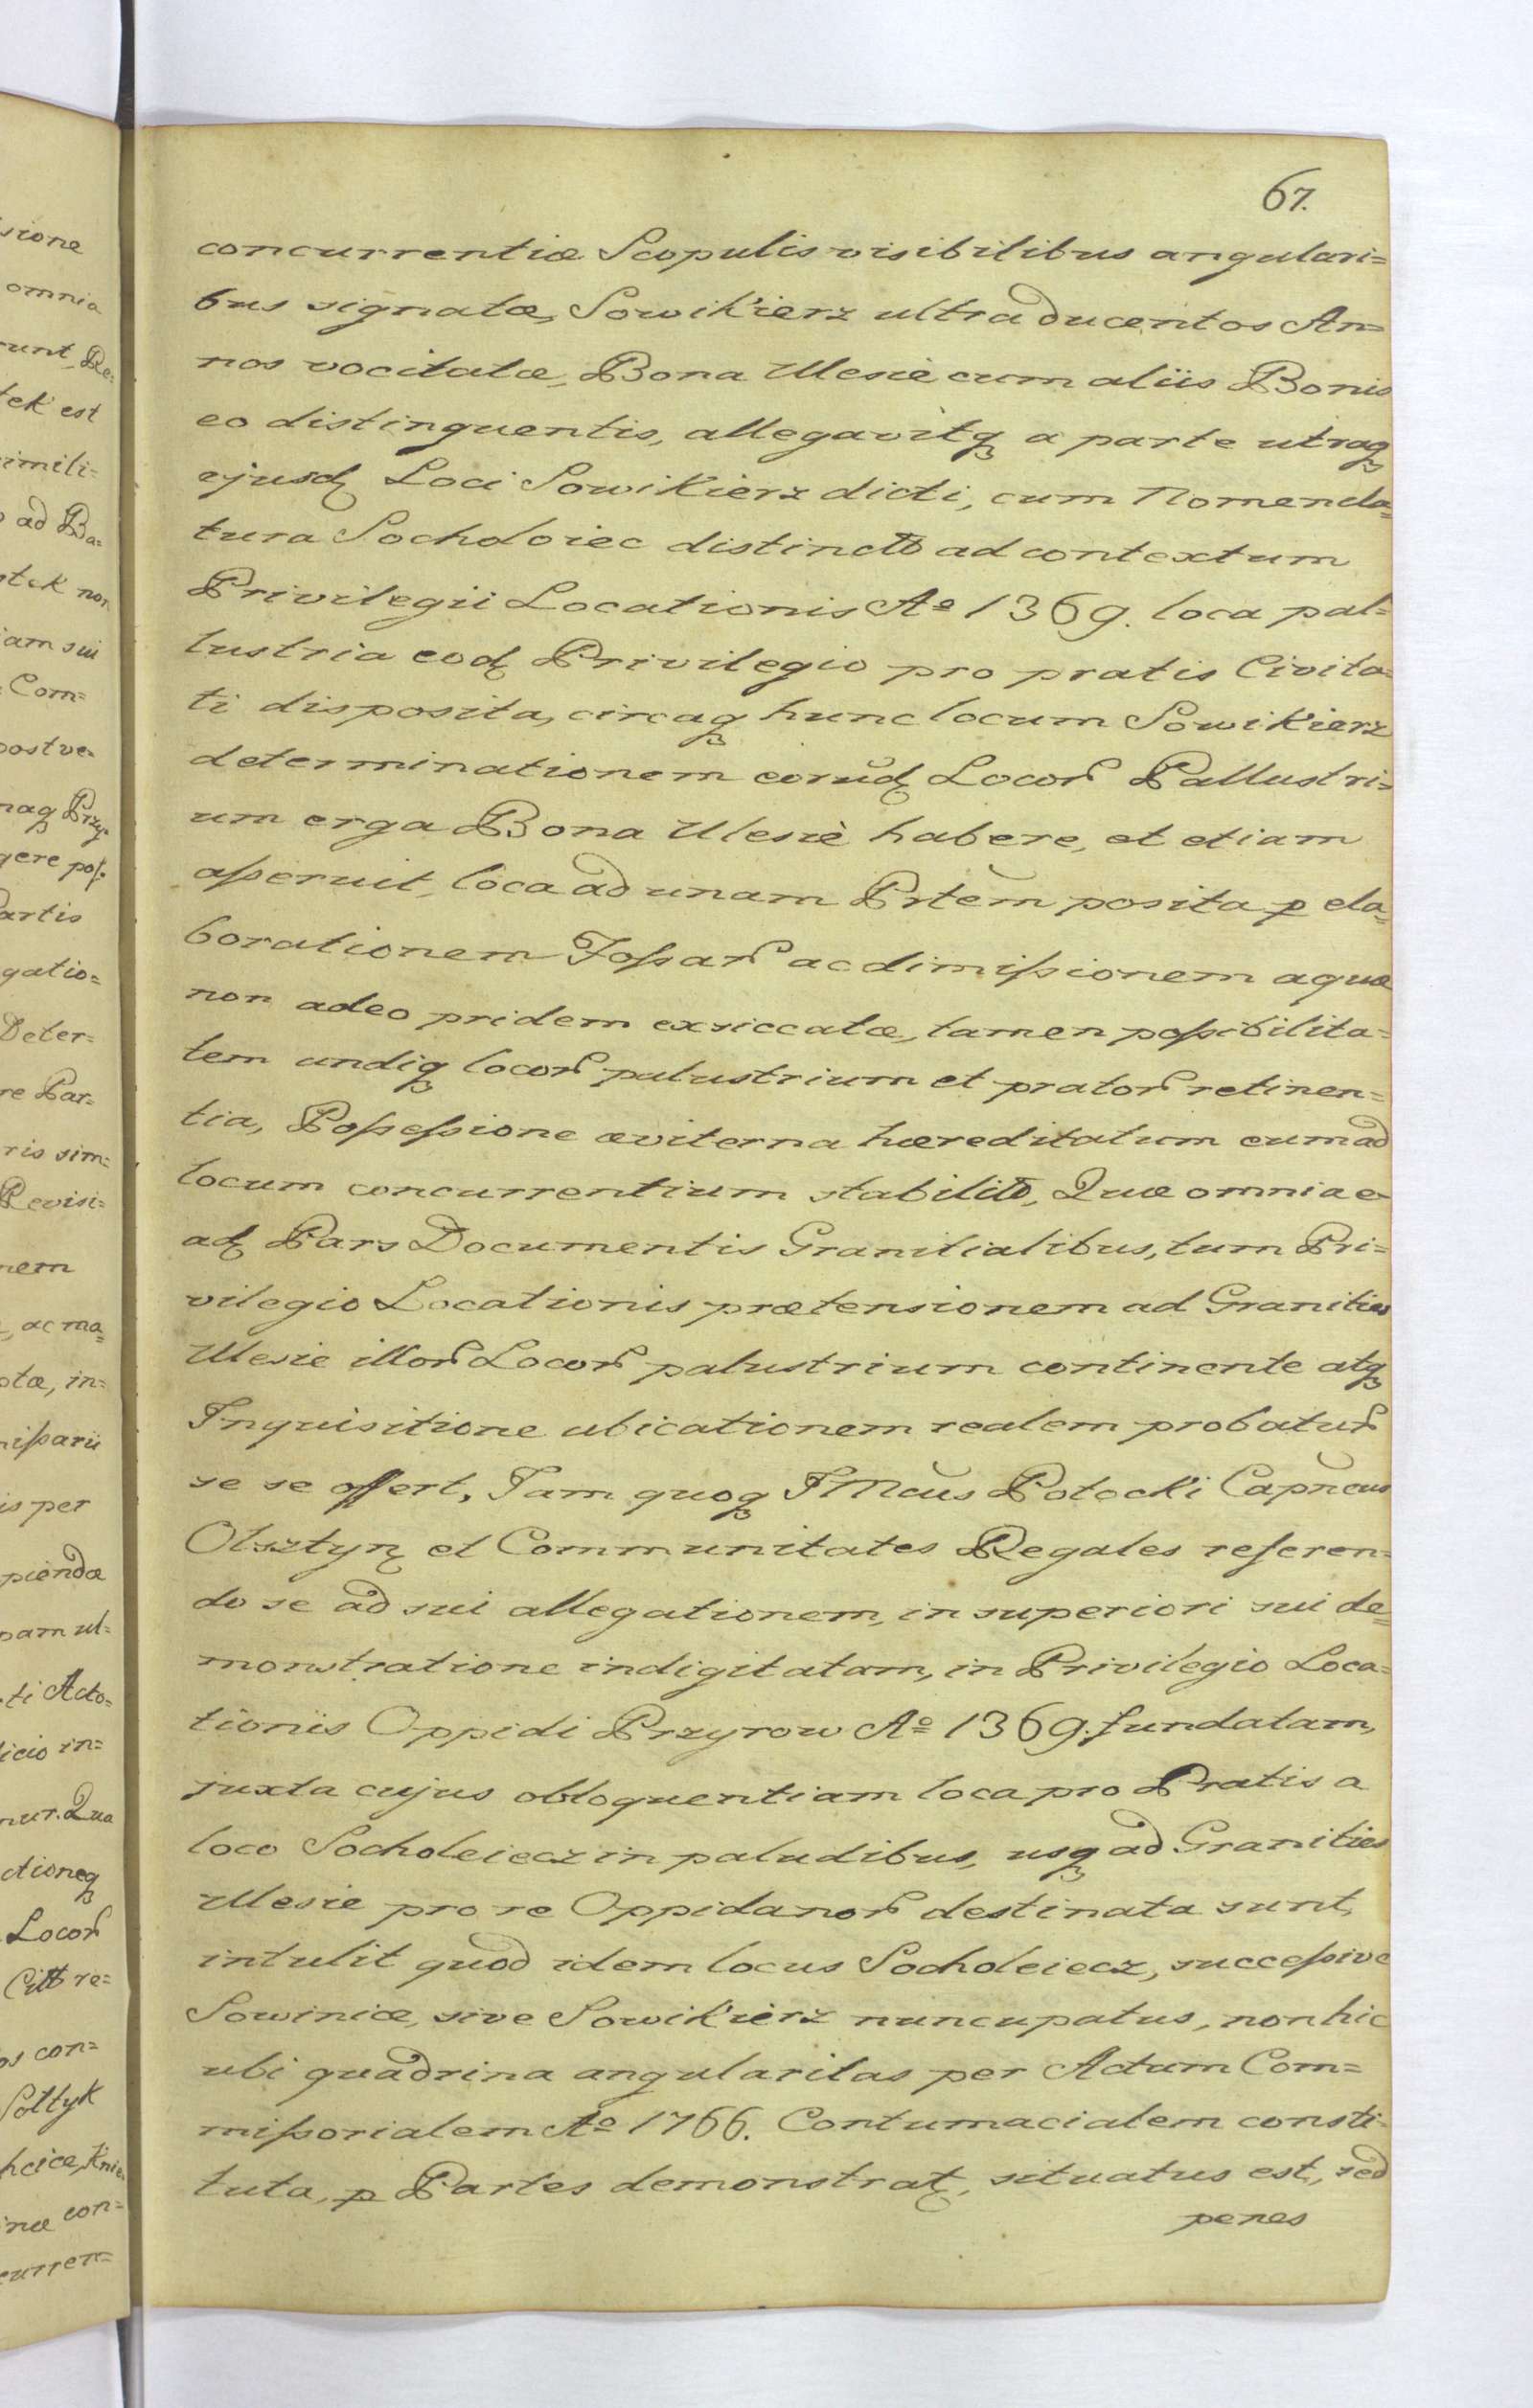 67.
concurrentiæ Scopulis visibilibus angulari=
bus signatæ, Sowikierz ultra ducentos An=
nos vocitatæ, Bona Ulesie cum aliis Bonis
eo distinguentis, allegavitq₃ a parte utraq₃
ejusd Loci Sowikierz dicti, cum Nomencla=
tura Socholoiec distincto ad contextum
Privilegii Locationis Aº 1369. loca pal=
lustria eod Privilegio pro pratis Civita=
ti disposita, circaq₃ hunc locum Sowikierz
determinationem eorūd Locor Pallustri=
um erga Bona Ulesiè habere, et etiam
asseruit, loca ad unam Prtēm posita p ela=
borationem Fossar ac dimissionem aquæ
non adeo pridem exsiccatæ, tamen possibilita=
tem undiq₃ locor palustrium et prator retinen=
tia, Possessione æviterna hæreditatum eum ad
locum concurrentium stabilito, Quæ omnia e=
ad Pars Documentis Granitialibus, tum Pri=
vilegio Locationis prætensionem ad Granities
Ulesie illor Locor palustrium continente atq₃
Inquisitione ubicationem realem probatur
se se offert, Jam quoq₃ IMcus Potocki Capneus
Olsztyn et Communitates Regales referen=
do se ad sui allegationem, in superiori sui de=
monstratione indigitatam, in Privilegio Loca=
tionis Oppidi Przyrow Aº 1369. fundatam,
juxta cujus obloquentiam loca pro Pratis a
loco Socholeiecz in paludibus, usq₃ ad Granities
Ulesie pro re Oppidanor destinata sunt,
intulit quod idem locus Socholeiecz, successive
Sowiniæ, sive Sowikierz nuncupatus, non hic
ubi quadrina angularitas per Actum Com=
missorialem Aº 1766. Contumacialem consti=
tuta, p Partes demonstrat, situatus est, sed
penes